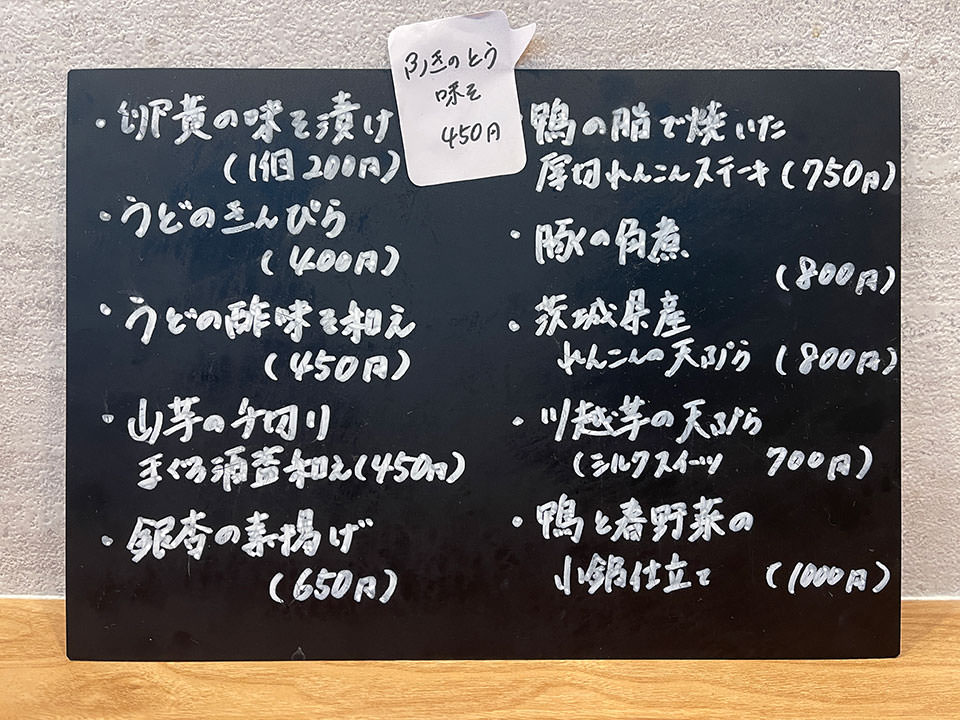 ふきのとう
味そ
450円
・卵黄の味そ漬け
(1個200円)
・うどのきんぴら
(400円)
・うどの酢味そ和え
(450円)
・山芋の千切り
まぐろ酒盗和え(450円)
・銀杏の素揚げ
(650円)
・鴨の脂で焼いた
厚切れんこんステーキ(750円)
・豚の角煮
(800円)
・茨城県産
れんこんの天ぷら(800円)
・川越芋の天ぷら
(シルクスイーツ 700円)
・鴨と春野菜の
小鍋仕立て (1000円)